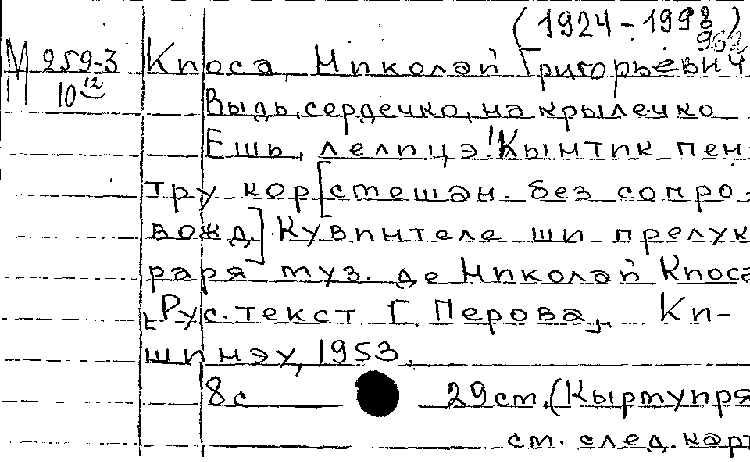 (1924-1998)
М 259-3 Кноса, Николай Григорьевич
10 12 Выдь, сердечко, на крылечко
Ешь, лелицэ! Кынтик пен-
тру кор [стешан. без сопро-
вожд.] Кувинтеле ши прелук-
раря муз. де Николай Кноса
Рус. текст Г. Перова, Ки-
шинэу, 1953.
8с 29 см. (Кыртупря
см. след. карт